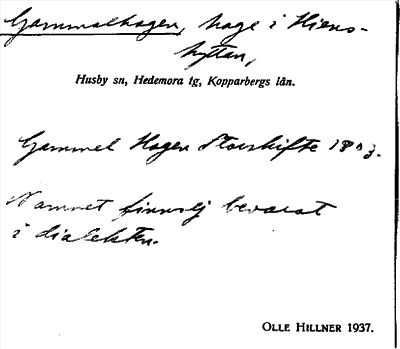 Gammelhagen, hage i Hiens-
hyttan,
Husby sn, Hedemora tg, Kopparbergs län.
Gammel Hagen Storskifte 1803.
Namnet finns ej bevarat
i dialekten.
OLLE HILLNER 1937.